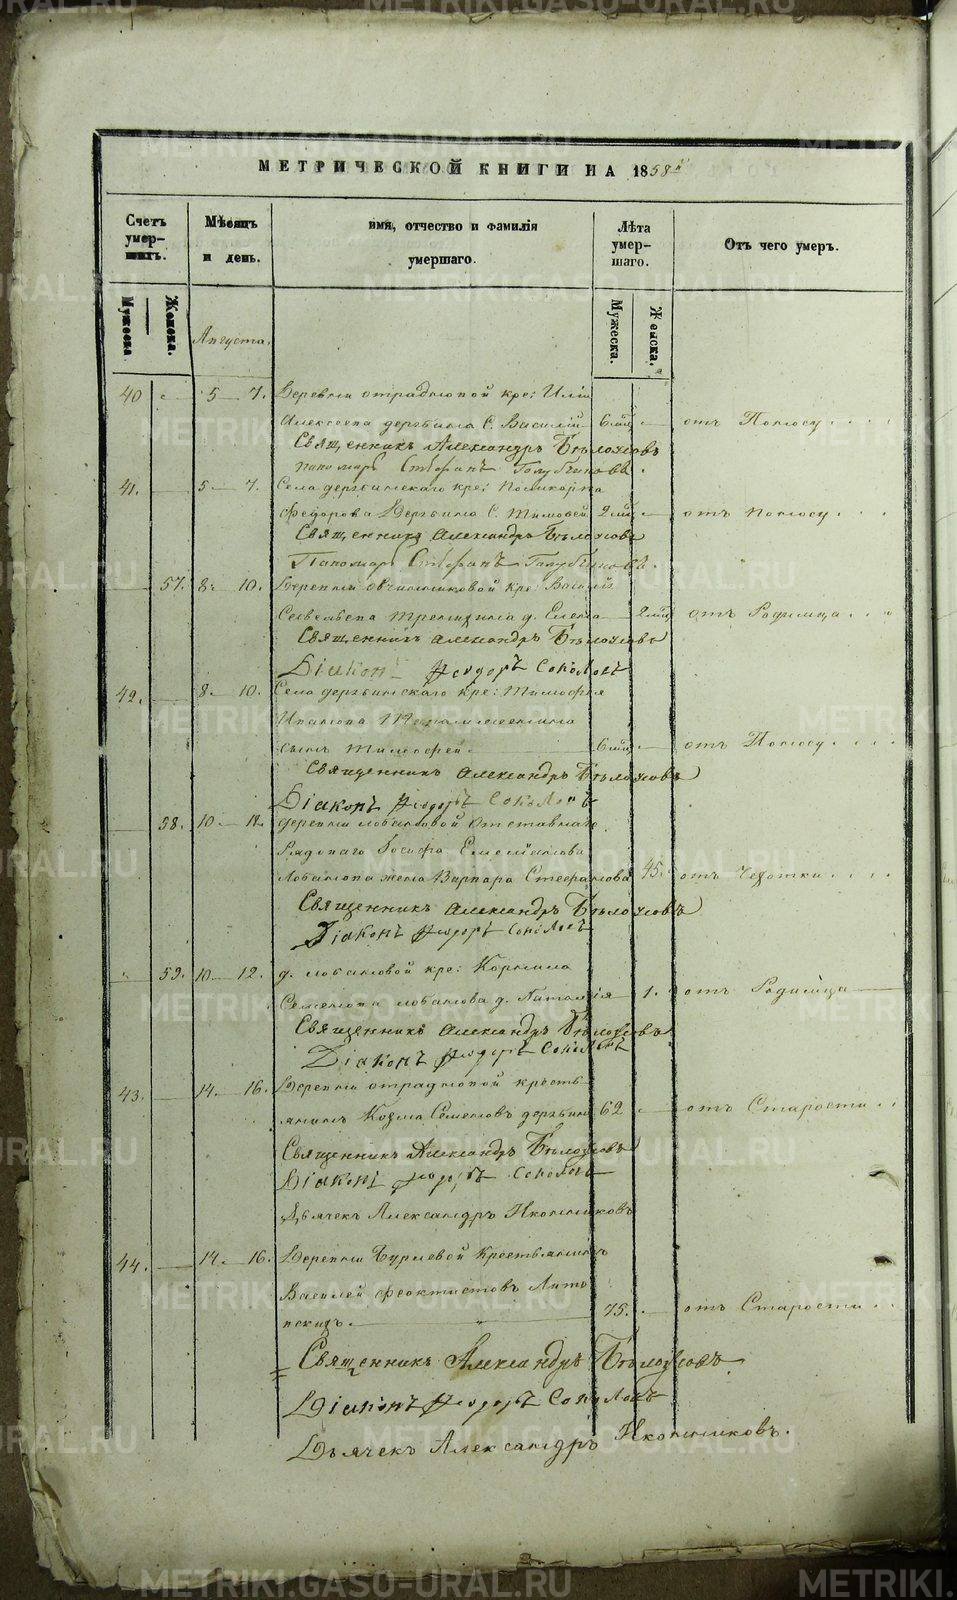 МЕТРИЧЕСКОЙ КНИГИ НА 1858й
Счетъ умер-шихъ.
Мѣсяцъ и день.
имя, отчество и фамилія умершаго.
Лѣта умер-шаго.
Отъ чего умеръ.
Мужеска
Женска.
Мужеска.
Женска.
Августа.
40 5 7. Деревни отрадновой кре: Иліи
Алексеева дерябина С. Василій 6 мц отъ Поносу
Священникъ Александръ Бѣлоусовъ
пономарь Стефанъ Голубчиковъ.
41. 5 7. Села дерябинскаго кре: Поликарпа
Федорова Дерябина С. Тимофей 2 мц отъ поносу
Священникъ Александръ Бѣлоусовъ
Пономарь Стефанъ Голубчиковъ.
57. 8. 10. Деревни овчинниковой кре: Василія
Савельева д. Елена 2 мц отъ Родимца
Священникъ Александръ Бѣлоусовъ
Діаконъ Феодоръ Соколовъ
42. 8. 10. Села дерябинскаго кре: Тимофея
Иванова
сынъ Тимофей. 6 мц отъ Поносу
Священникъ Александръ Бѣлоусовъ
Діаконъ Феодоръ Соколовъ
58. 10 12. деревни лобановой отставнаго
Рядоваго Іосифа Емельянова
Лобанова жена Варвара Стефанова 45. отъ Чахотки
Священникъ Александръ Бѣлоусовъ
Діаконъ Феодоръ Соколовъ
59. 10 12. д. лобановой кре: Корнила
Семенова лобанова д. Наталія 1. отъ Родимца
Священникъ Александръ Бѣлоусовъ
Діаконъ Феодоръ Соколовъ
43. 14. 16. Деревни отрадновой кресть-
янинъ Козма Семеновъ дерябинъ 62 отъ Старости
Священникъ Александръ Бѣлоусовъ
Діаконъ Феодоръ Соколовъ
Дьячекъ Александръ Иконниковъ
44. 14. 16. Деревни Бурлевой Крестьянинъ
Василей Феоктистовъ Лито
вскихъ. 75. отъ Старости
Священникъ Александръ Бѣлоусовъ
Діаконъ Феодоръ Соколовъ
Дьячекъ Александръ Иконниковъ.
METRIKI.GASO-URAL.RU